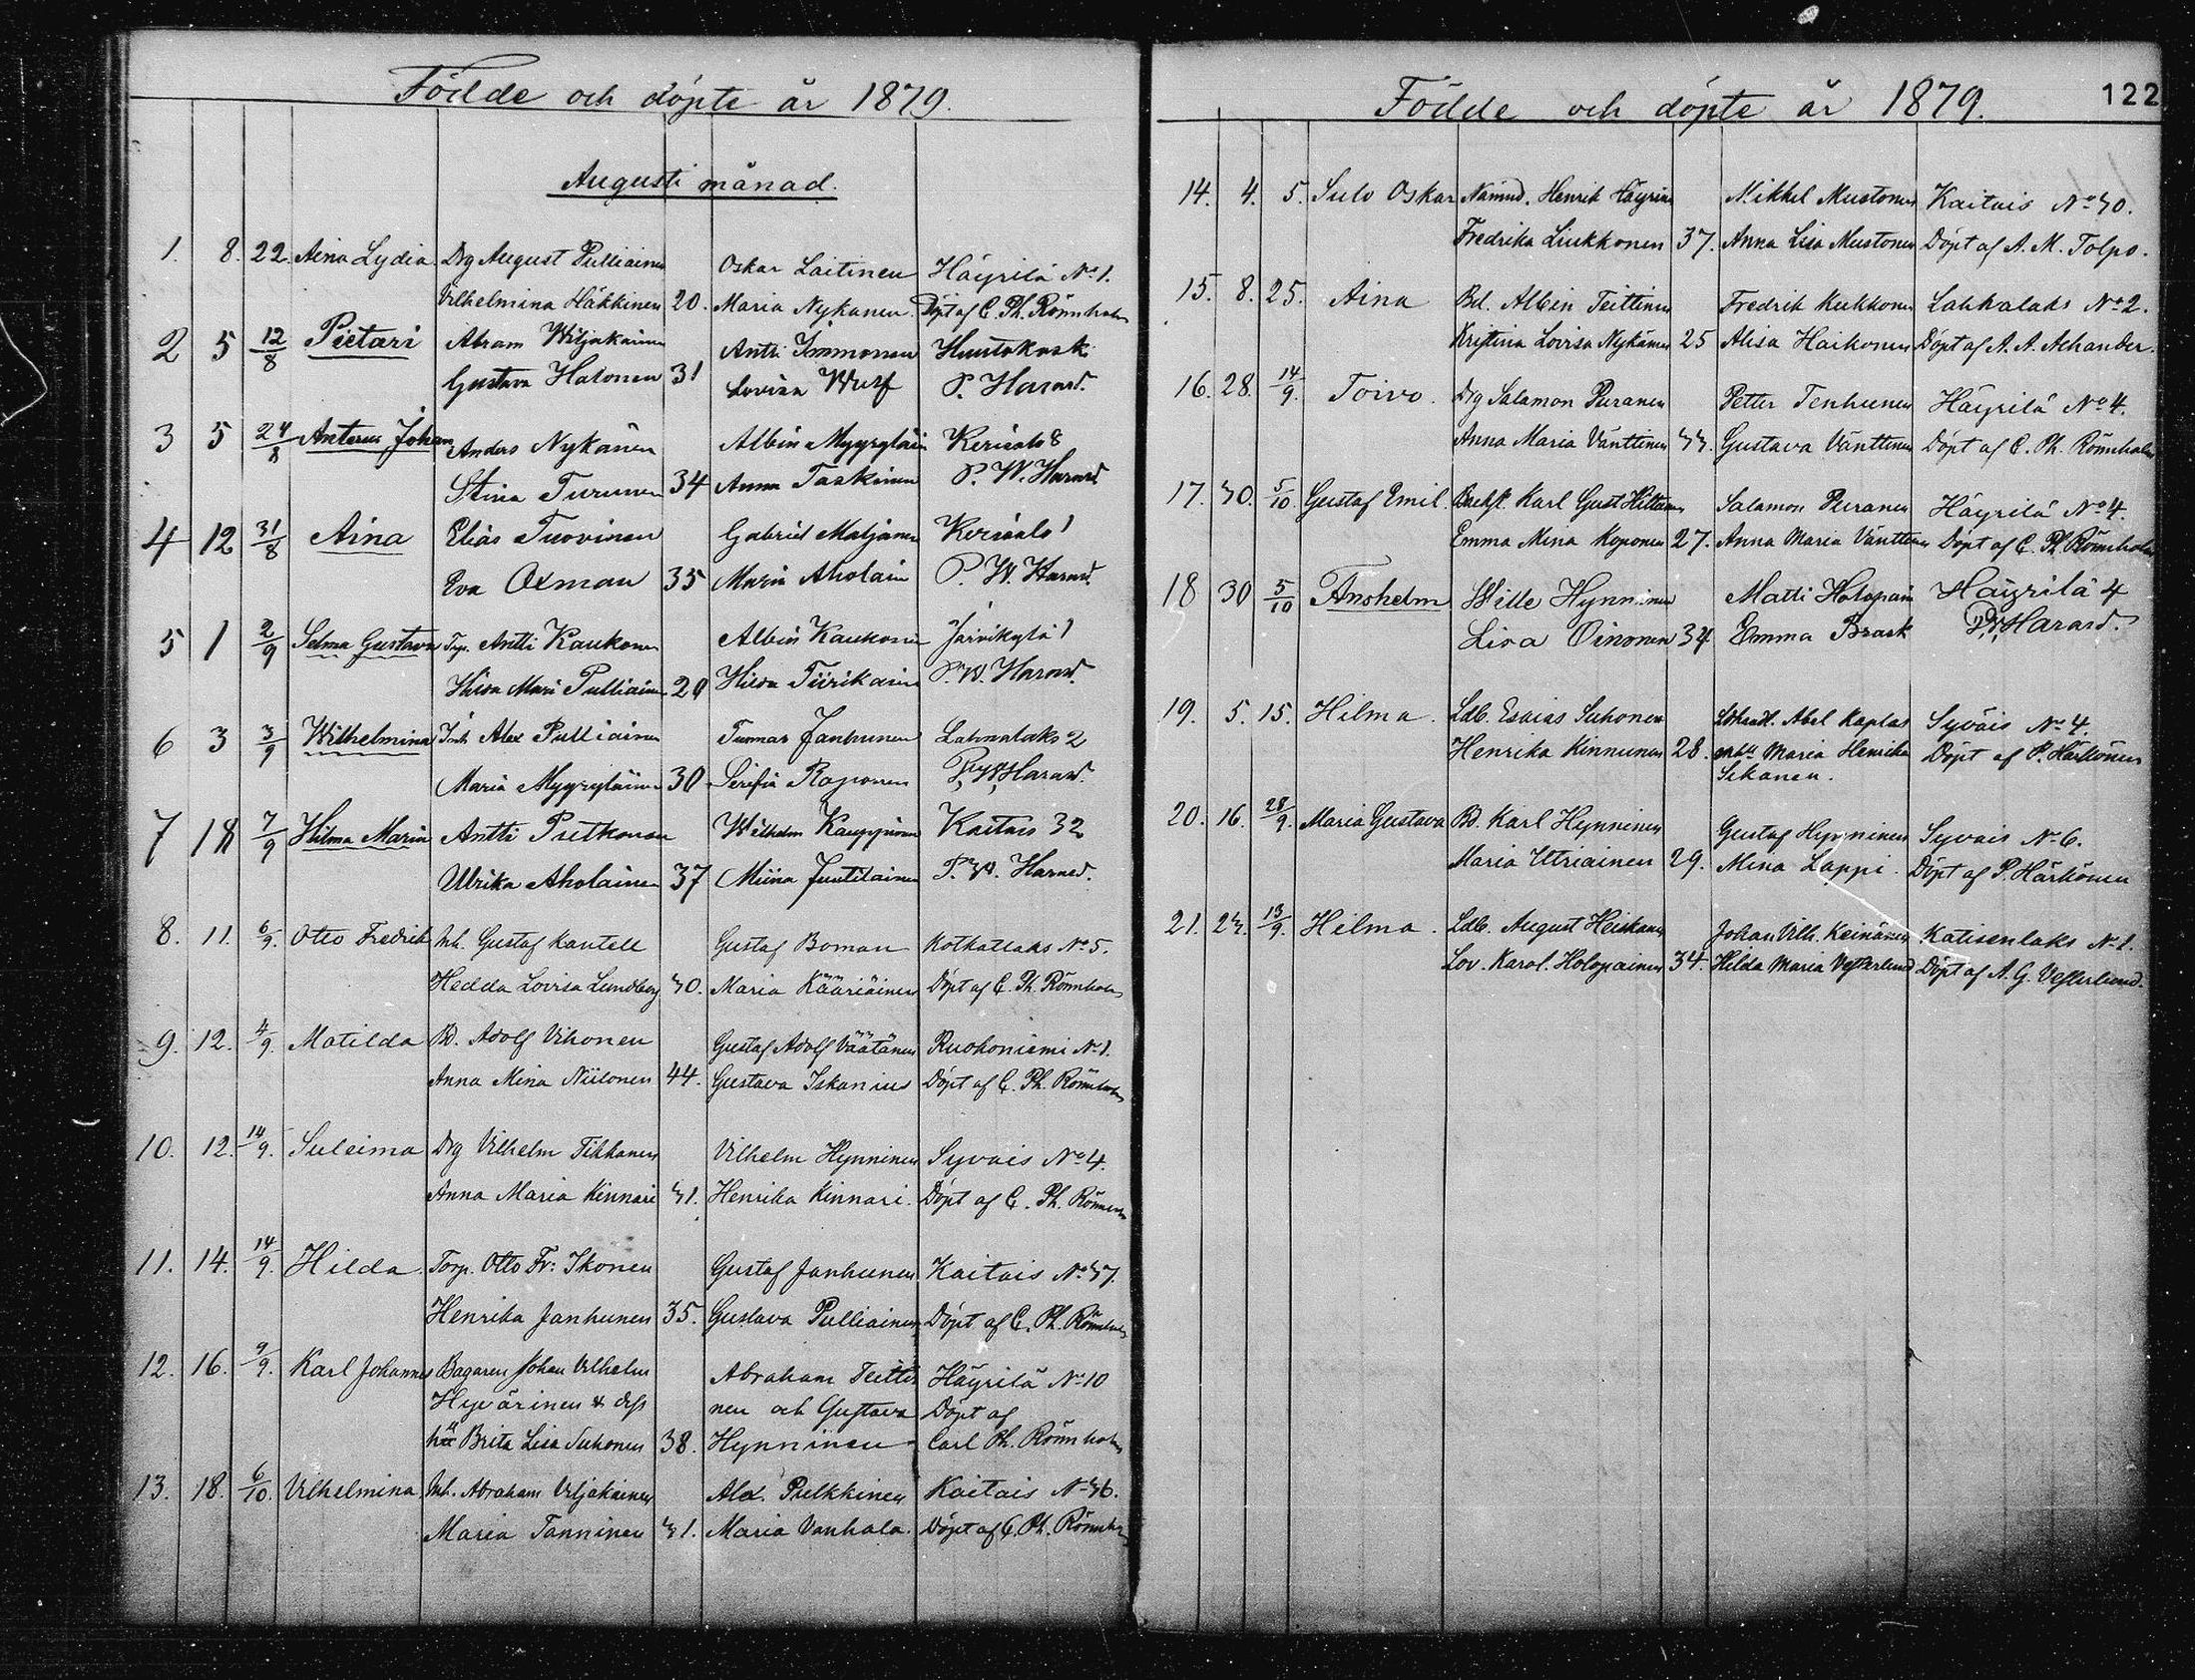 Födde och döpte år 1879.
Augusti månad.
1. 8. 22. Aina Lydia Drg August Pulliainen Oskar Laitinen Häyrilä No 1.
Vilhelmina Häkkinen 20. Maria Nykanen Döpt af C. Ph. Rönnholm
2 5 12/8 Pietari Abram Wiljakainen Antti Immonen
Gustava Halonen 31 Lovisa Wulf P. Harard.
3 5 24/8 Anterus Johan Anders Nykänen Albin Myyryläin Kerisalo 8
Stina Turunen 34 Anna Taskinen P. W. Harard
4 12 31/8 Aina Elias Tuovinen Gabriel Matjanen Kerisalo 1
Eva Oxman 35 Maria Aholain P. W. Harard.
5 1 2/9 Selma Gustava Trp. Antti Kaukonen Albin Kaukonen Järvikylä 1
Mari Pulliainen 29 Hilda Tiirikainen P. W. Harard.
6 3 3/9 Wilhelmina Inh Alex Pulliainen Janhunen 2
Maria Myyryläinen 30 Serifia Roponen P. W. Harard.
7 18 7/9 Hilma Maria Antti Putkonen Wilhelm Kauppinen Kaitais 32
Ulrika Aholainen 37 Miina Juutilainen P. W. Harard.
8. 11. 6/9. Otto Fredrik Inh. Gustaf Kantell Gustaf Boman Kotkatlaks No 5.
Hedda Lovisa Lundberg 40. Maria Kääriäinen Döpt af C. Ph. Rönnholm
9. 12. 4/9. Matilda Bd. Adolf Vihonen Gustaf Adolf Väätänen Ruokoniemi No 1.
Anna Mina Niilonen 44. Gustava Iskanius Döpt af C. Ph. Rönnholm
10. 12. 14/9. Suleima Drg Vilhelm Tikkanen Vilhelm Hynninen Syvais No 4.
Anna Maria Kinnari 41. Henrika Kinnari. Döpt af C. Ph. Rönnholm
11. 14. 14/9. Hilda Torp. Otto Fr: Ikonen Gustaf Janhunen Kaitais No 47.
Henrika Janhunen 35. Gustava Pulliainen Döpt af C. Ph. Rönnholm
12. 16. 9/9. Karl Johannes Bagaren Johan Vilhelm Abraham Teitti Häyrilä No 10
Hyvärinen & dess nen och Gustava Döpt af
hu Brita Lisa Suhonen 38. Hynninen Carl Ph. Rönnholm
13. 18. 6/10. Vilhelmina Inh. Abraham Viljakainen Alex. Pulkkinen Kaitais No 46.
Maria Tanninen 41. Maria Vanhala. Döpt af C. Ph. Rönnholm
Födde och döpte år 1879. 122
14. 4. 5. Sulo Oskar Nämnd. Henrik Häyrinen Mikkel Mustonen Kaitais No 40.
Fredrika Liukkonen 37. Anna Lisa Mustonen Döpt af A. M. Tolpo.
15. 8. 25. Aina Bd. Albin Teittinen Fredrik Kukkonen Lahkalaks No 2.
Kristina Lovisa Nykänen 25 Alisa Haikonen Döpt af A. A. Ahander.
16. 28. 14/9. Toivo. Drg Salamon Puranen Petter Tenhunen Häyrilä No 4.
Anna Maria Vänttinen 44. Gustava Vänttinen Döpt af C. Ph. Rönnholm
17. 40. 5/10 Gustaf Emil. Karl Gust Hittanen Salamon Puranen Häyrilä No 4.
Emma Mina Koponen 27. Anna Maria Vänttinen Döpt af C. Ph. Rönnholm
18 30 5/10 Ansheln Wille Hynninen Matti Holopain Häyrilä 4
Lisa Oinonen 34 Emma Brask P. W. Harard.
19. 5. 15. Hilma. Ldb. Esaias Suhonen Abel Kaplas Syväis No 4.
Henrika Kinnunen 28. Maria Henrika Döpt af P. Härkönen
Sikanen.
20. 16. 28/9. Maria Gustava Bd. Karl Hynninen Gustaf Hynninen Syvais No 6.
Maria Utriainen 29. Mina Lappi. Döpt af P. Härkönen
21. 24. 13/9. Hilma. Ldb. August Heiskanen Johan Vilh. Keinänen Katisenlaks No 1.
Lov. Karol. Holopainen 34. Hilda Maria Vesterlund Döpt af A. G. Vesterlund.